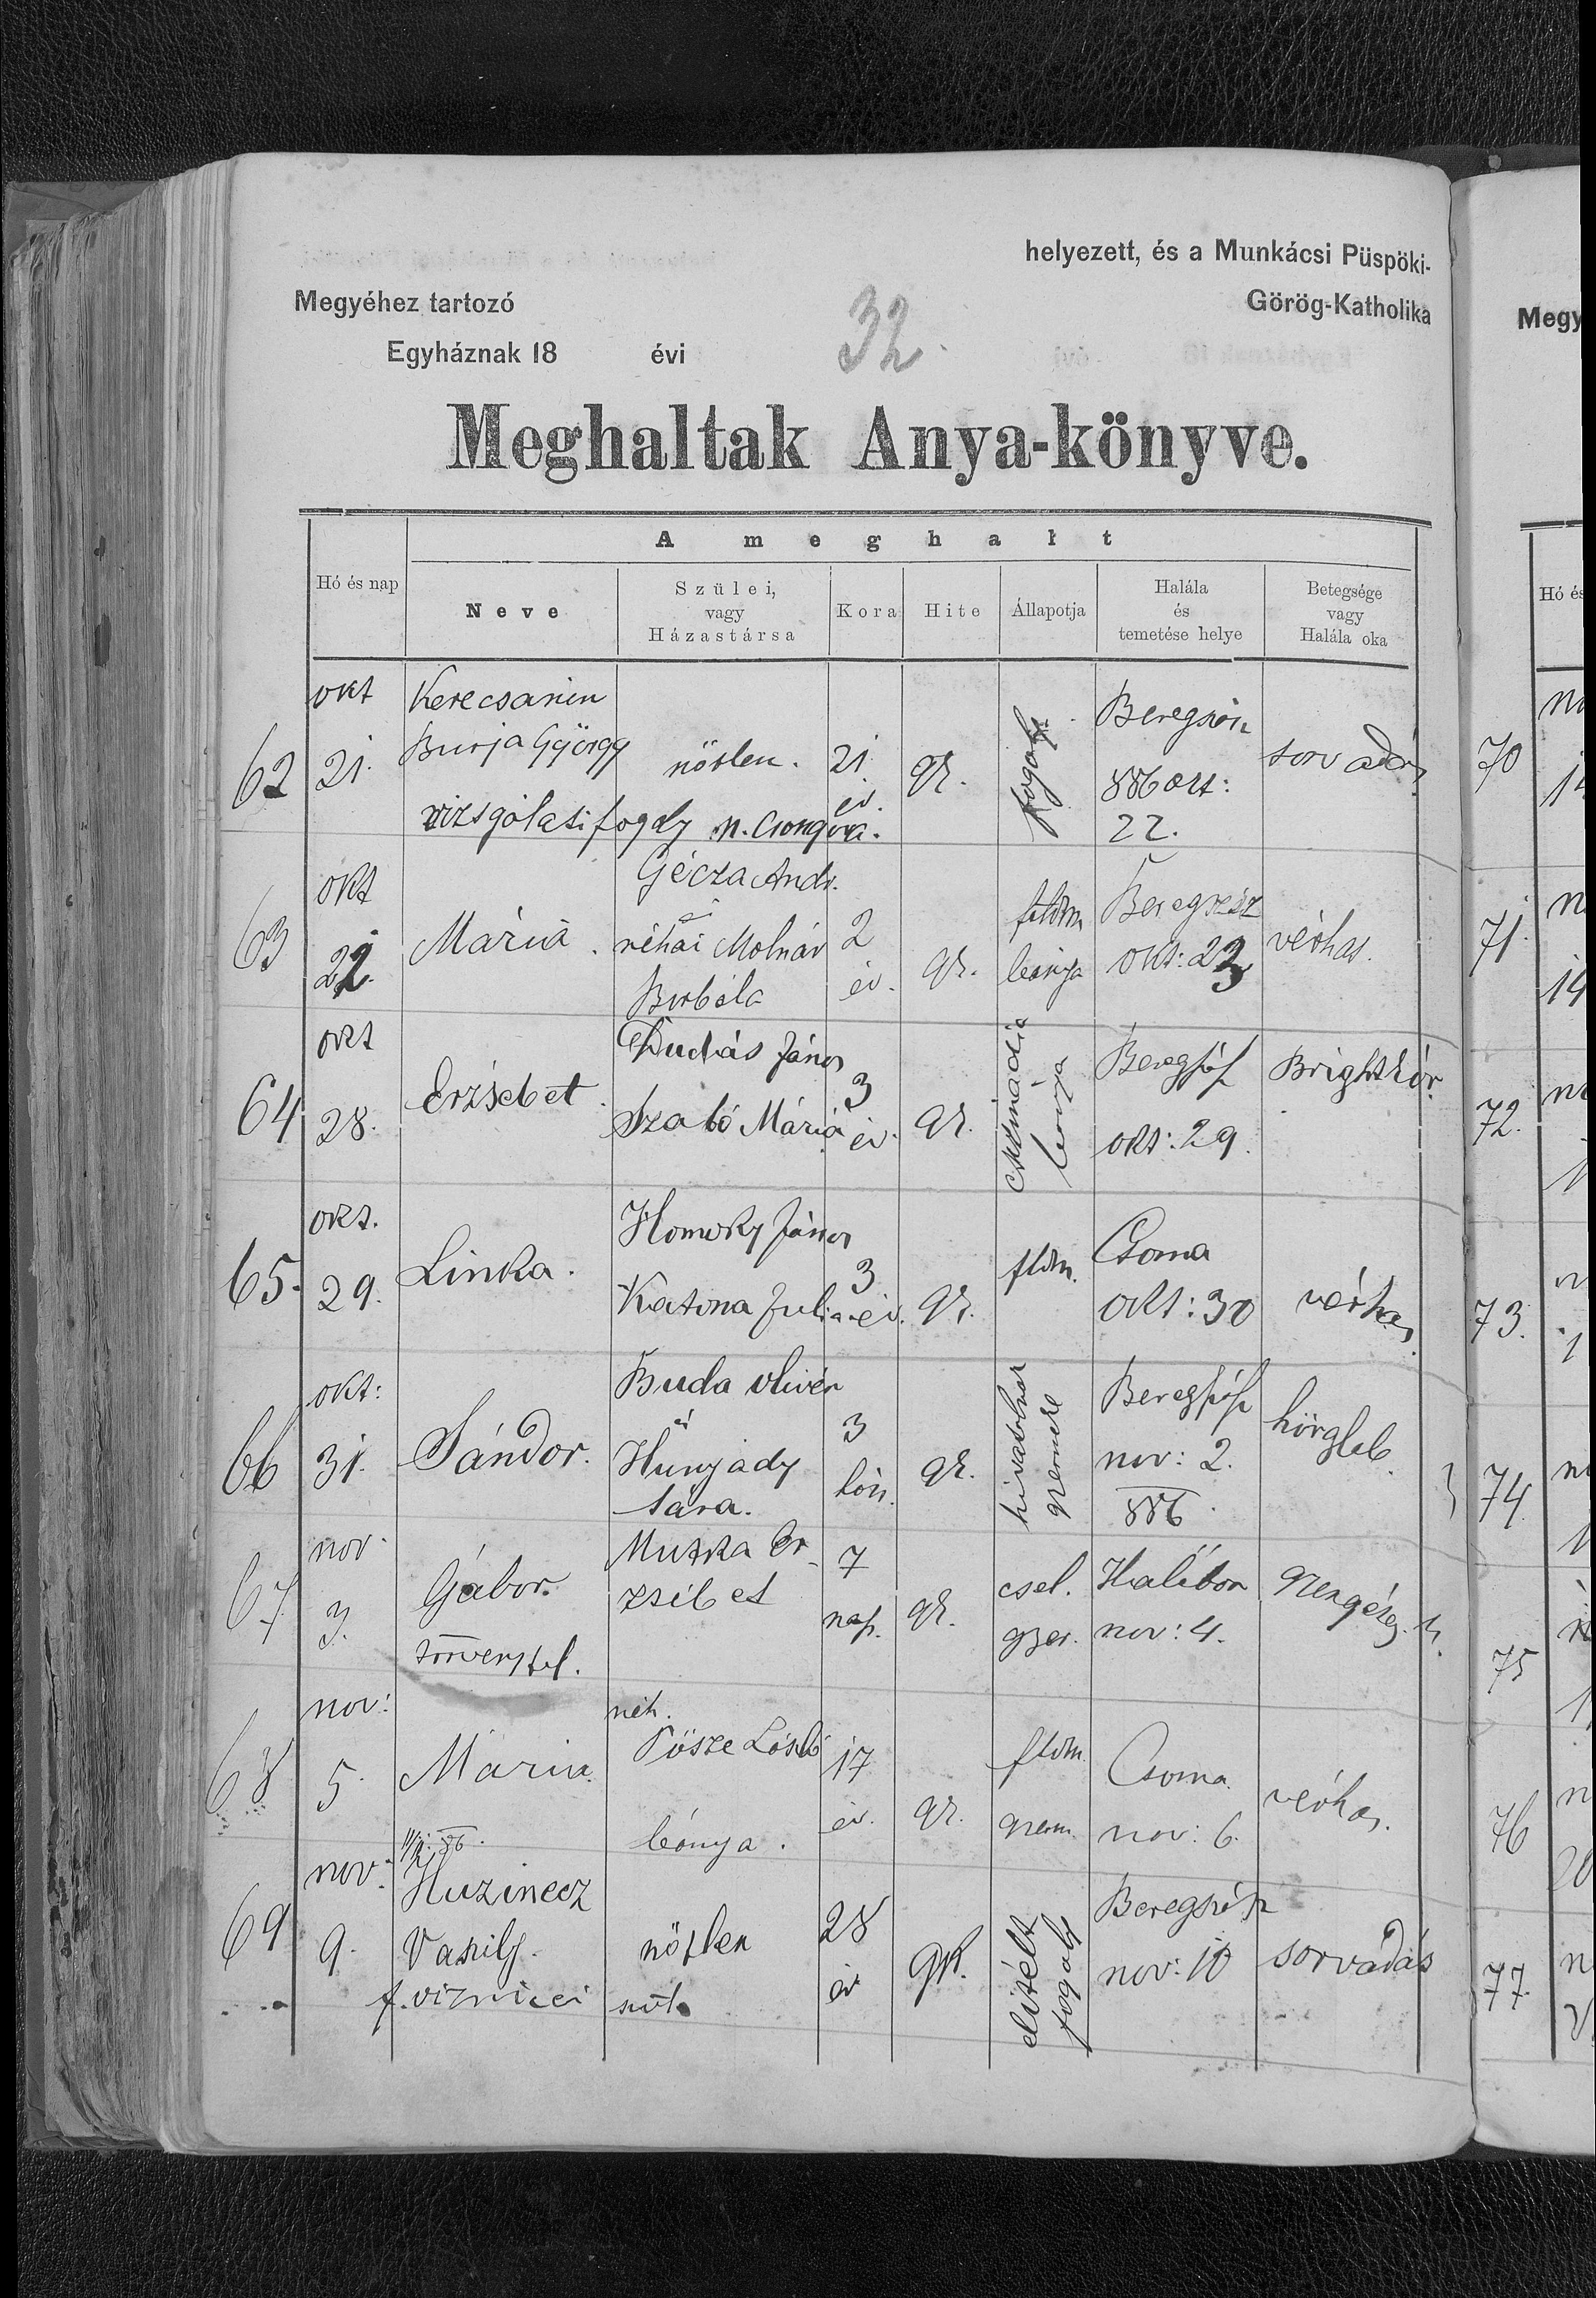 helyezett, és a Munkácsi Püspöki-
Megyéhez tartozó
Görög-Katholika
Egyháznak 18 évi
32.
Meghaltak Anya-könyve.
A meghalt
Hó és nap
Neve
Szülei,
vagy
Házastársa
Kora
Hite
Állapotja
Halála
és
temetése helye
Betegsége
vagy
Halála oka
62
okt
21.
Burja György
nőtlen.
21
év.
gk.
886 okt:
22.
sorvadás
63
okt
22.
Mária.
Gécza Andr.
néhai Molnár
Borbála
2
év.
gk.
földm
leánya
Beregszász
okt: 23
vérhas.
64
okt
28.
Erzsebet.
Dudás János
Szabó Mária
3
év.
gk.
csizmadia
leánya
okt: 29.
Brightkór.
65.
okt.
29.
Linka.
Homoky János
Katona Julia
3
év.
gk.
fldm.
Csoma
okt: 30
vérhas
66
okt:
31.
Sándor.
Buda Olivér
és
Hunyady
Sára.
3
hón.
gk.
gyermeke
nov: 2.
886
67
nov.
3.
Gábor.
törvenytel.
Er-
zsébet
7
nap.
gk.
csel.
gyer.
nov: 4.
68
nov:
5.
Mária.
néh.
Pösze László
leánya.
17
év.
gk.
fldm.
gyerm.
Csoma.
nov: 6.
vérhas.
69
nov.
9.
Huzinecz
Vaszily.
nőtlen
28
év
gk.
elitélt
fogoly
nov: 10
sorvadás
Megy
Hó és
70
71.
72.
73.
74
75
76
77.